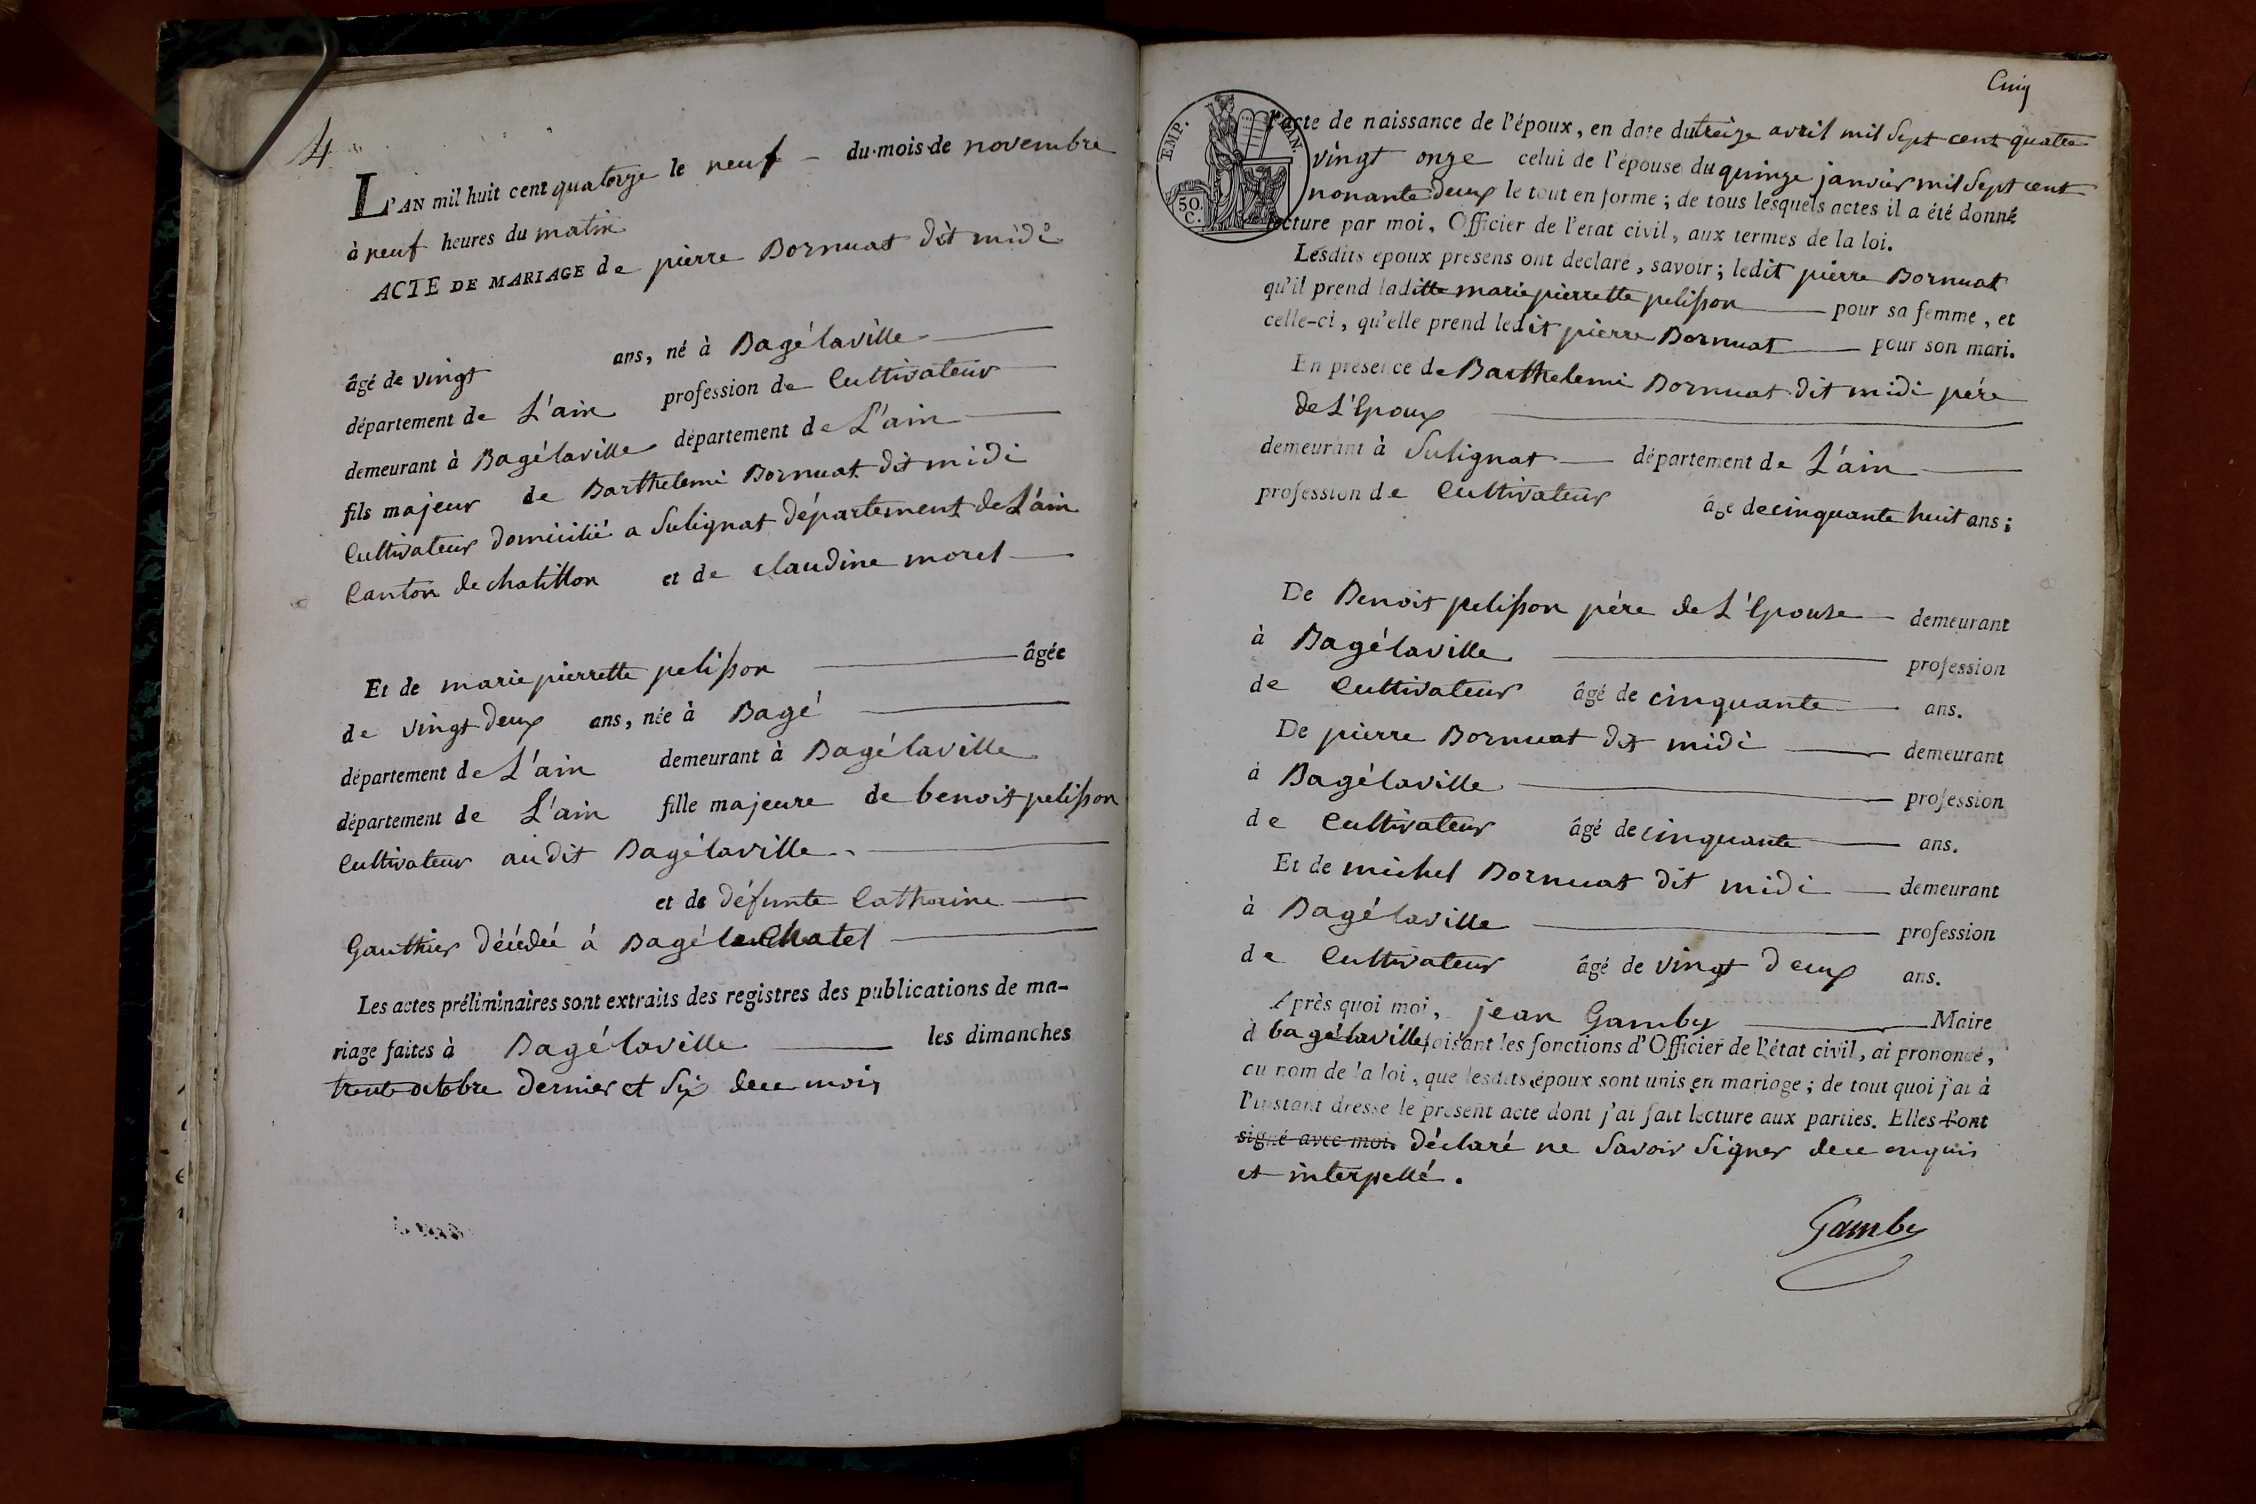 4
L'AN mil huit cent quatorze le neuf - du mois de novembre
à neuf heures du matin
ACTE DE MARIAGE de pierre Bornuat dit midi
âgé de vingt ans, né à Bagélaville
département de L'ain profession de Cultivateur
demeurant à Bagélaville département de L'ain
fils majeur de Barthelemi Bornuat dit midi
Cultivateur domicilié a Sulignat département de L'ain
Canton de chatillon et de claudine morel
Et de marie pierrette pelisson âgée
de vingt deux ans, née à Bagé
département de L'ain demeurant à Bagélaville
département de L'ain fille majeure de benoit pelisson
Cultivateur audit Bagélaville
et de défunte Catherine
Gauthier décédée à Bagé le Chatel
Les actes préliminaires sont extraits des registres des publications de ma-
riage faites à Bagélaville les dimanches
trente octobre dernier et Six de ce mois
Cinq
EMP. FRAN.
50.
C.
l'acte de naissance de l'époux, en date du treize avril mil Sept cent quatre
vingt onze celui de l'épouse du quinze janvier mil Sept cent
nonante deux le tout en forme ; de tous lesquels actes il a été donné
lecture par moi, Officier de l'état civil, aux termes de la loi.
Lesdits époux présens ont déclaré, savoir ; ledit pierre Bornuat
qu'il prend laditte marie pierrette pelisson pour sa femme, et
celle-ci, qu'elle prend ledit pierre Bornuat pour son mari.
En présence de Barthelemi Bornuat dit midi pére
de L'Epoux
demeurant à Sulignat département de L'ain
profession de Cultivateur âgé de cinquante huit ans ;
De Benoit pelisson pére de L'Epouse demeurant
à Bagélaville profession
de Cultivateur âgé de cinquante ans.
De pierre Bornuat dit midi demeurant
à Bagélaville profession
de Cultivateur âgé de cinquante ans.
Et de michel Bornuat dit midi demeurant
à Bagélaville profession
de Cultivateur âgé de vingt deux ans.
Après quoi moi, jean Gamby Maire
à bagélaville faisant les fonctions d'Officier de l'état civil, ai prononcé,
au nom de la loi, que lesdits époux sont unis en mariage ; de tout quoi j'ai à
l'instant dressé le présent acte dont j'ai fait lecture aux parties. Elles l'ont
signé avec moi. déclaré ne Savoir Signer de ce enquis
et interpellé.
Gamby